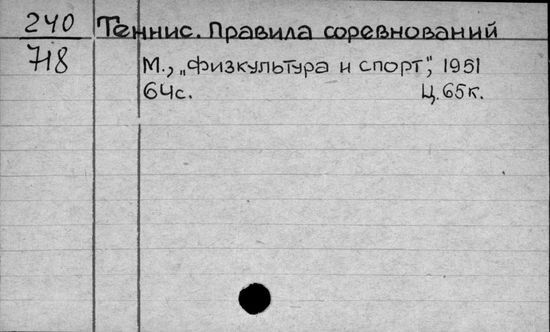 240 Теннис. Правила соревнований
718 М., „физкультура и спорт", 1951
64с. Ц. 65к.